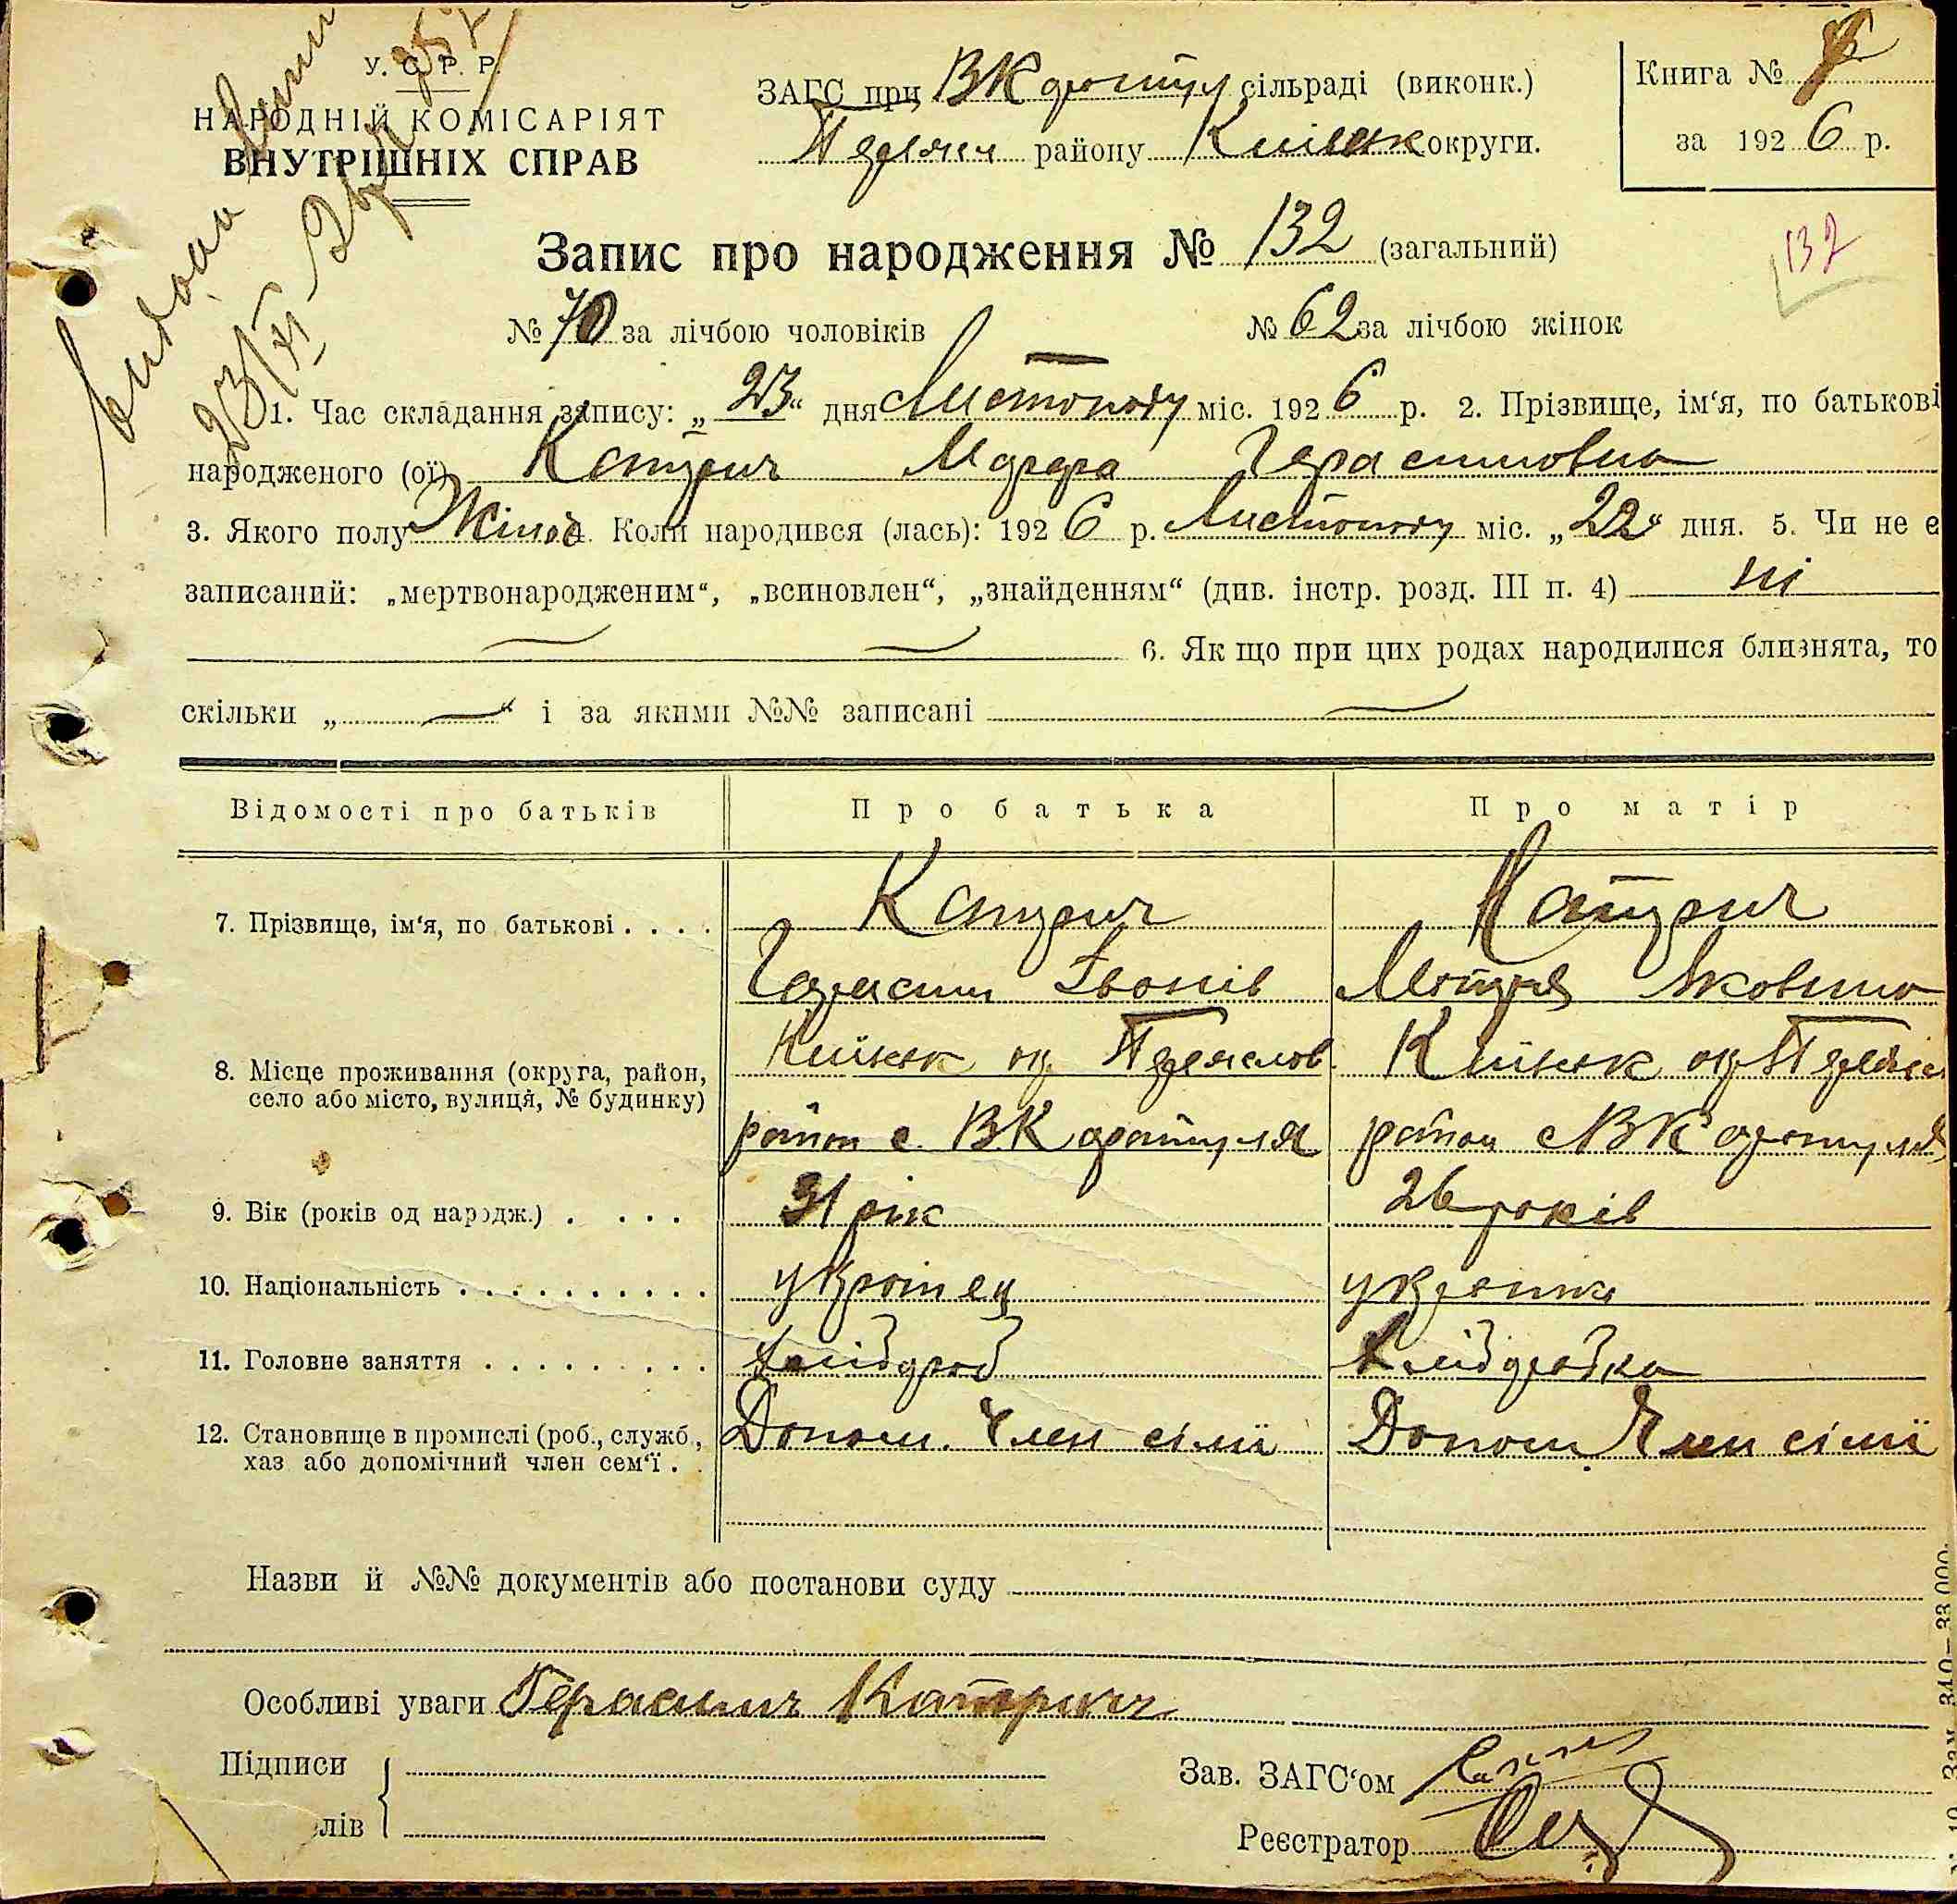 У. С. Р. Р.
НАРОДНІЙ КОМІСАРІЯТ
ВНУТРІШНІХ СПРАВ
ЗАГС при В Каратул сільраді (виконк.)
Переяс району Київськ округи.
Книга №
за 1926 р.
Запис про народження № 132 (загальний)
132
№ 70 за лічбою чоловіків № 62 за лічбою жінок
1. Час складання запису: „23“ дня Листопаду міс. 1926 р. 2. Прізвище, ім‘я, по батькові
народженого (ої) Катрич Марфа Герасимовна
3. Якого полу Жіноч 4. Коли народився (лась): 1926 р. Листопаду міс. „22“ дня. 5. Чи не є
записаний: „мертвонародженим“, „всиновлен“, „знайденням“ (див. інстр. розд. III п. 4) ні
— — 6. Як що при цих родах народилися близнята, то
скільки „—“ і за якими №№ записані —
Відомості про батьків Про батька Про матір
7. Прізвище, ім‘я, по батькові . . . . Катрич Катрич
Герасим Іванів Мотря Яковина
8. Місце проживання (округа, район, Київськ ок. Переяслов Київськ ок Переяс
село або місто, вулиця, № будинку)
район с. В Каратуля район с В Каратуля
9. Вік (років од народж.) . . . . 31 рік 26 років
10. Національність . . . . . . . . . . українец українка
11. Головне заняття . . . . . . . . . хлібороб хліборобка
12. Становище в промислі (роб., служб., Допом. Член сімї Допом Член сімї
хаз або допомічний член сем‘ї .
Назви й №№ документів або постанови суду
Особливі уваги Герасим Катрич
Підписи
лів
Зав. ЗАГС‘ом
Реєстратор